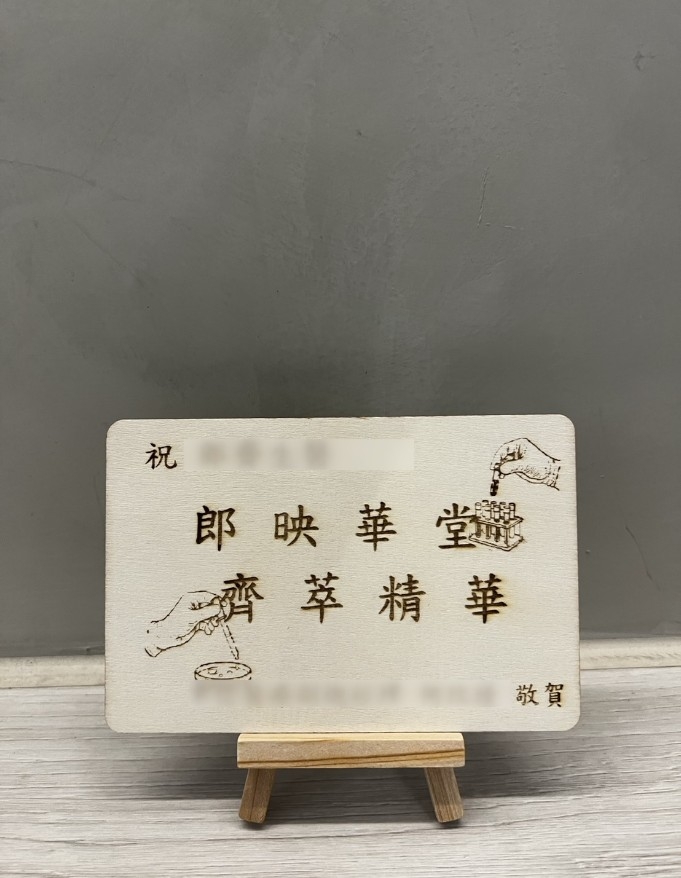 祝
郎映華堂
齊萃精華
敬賀